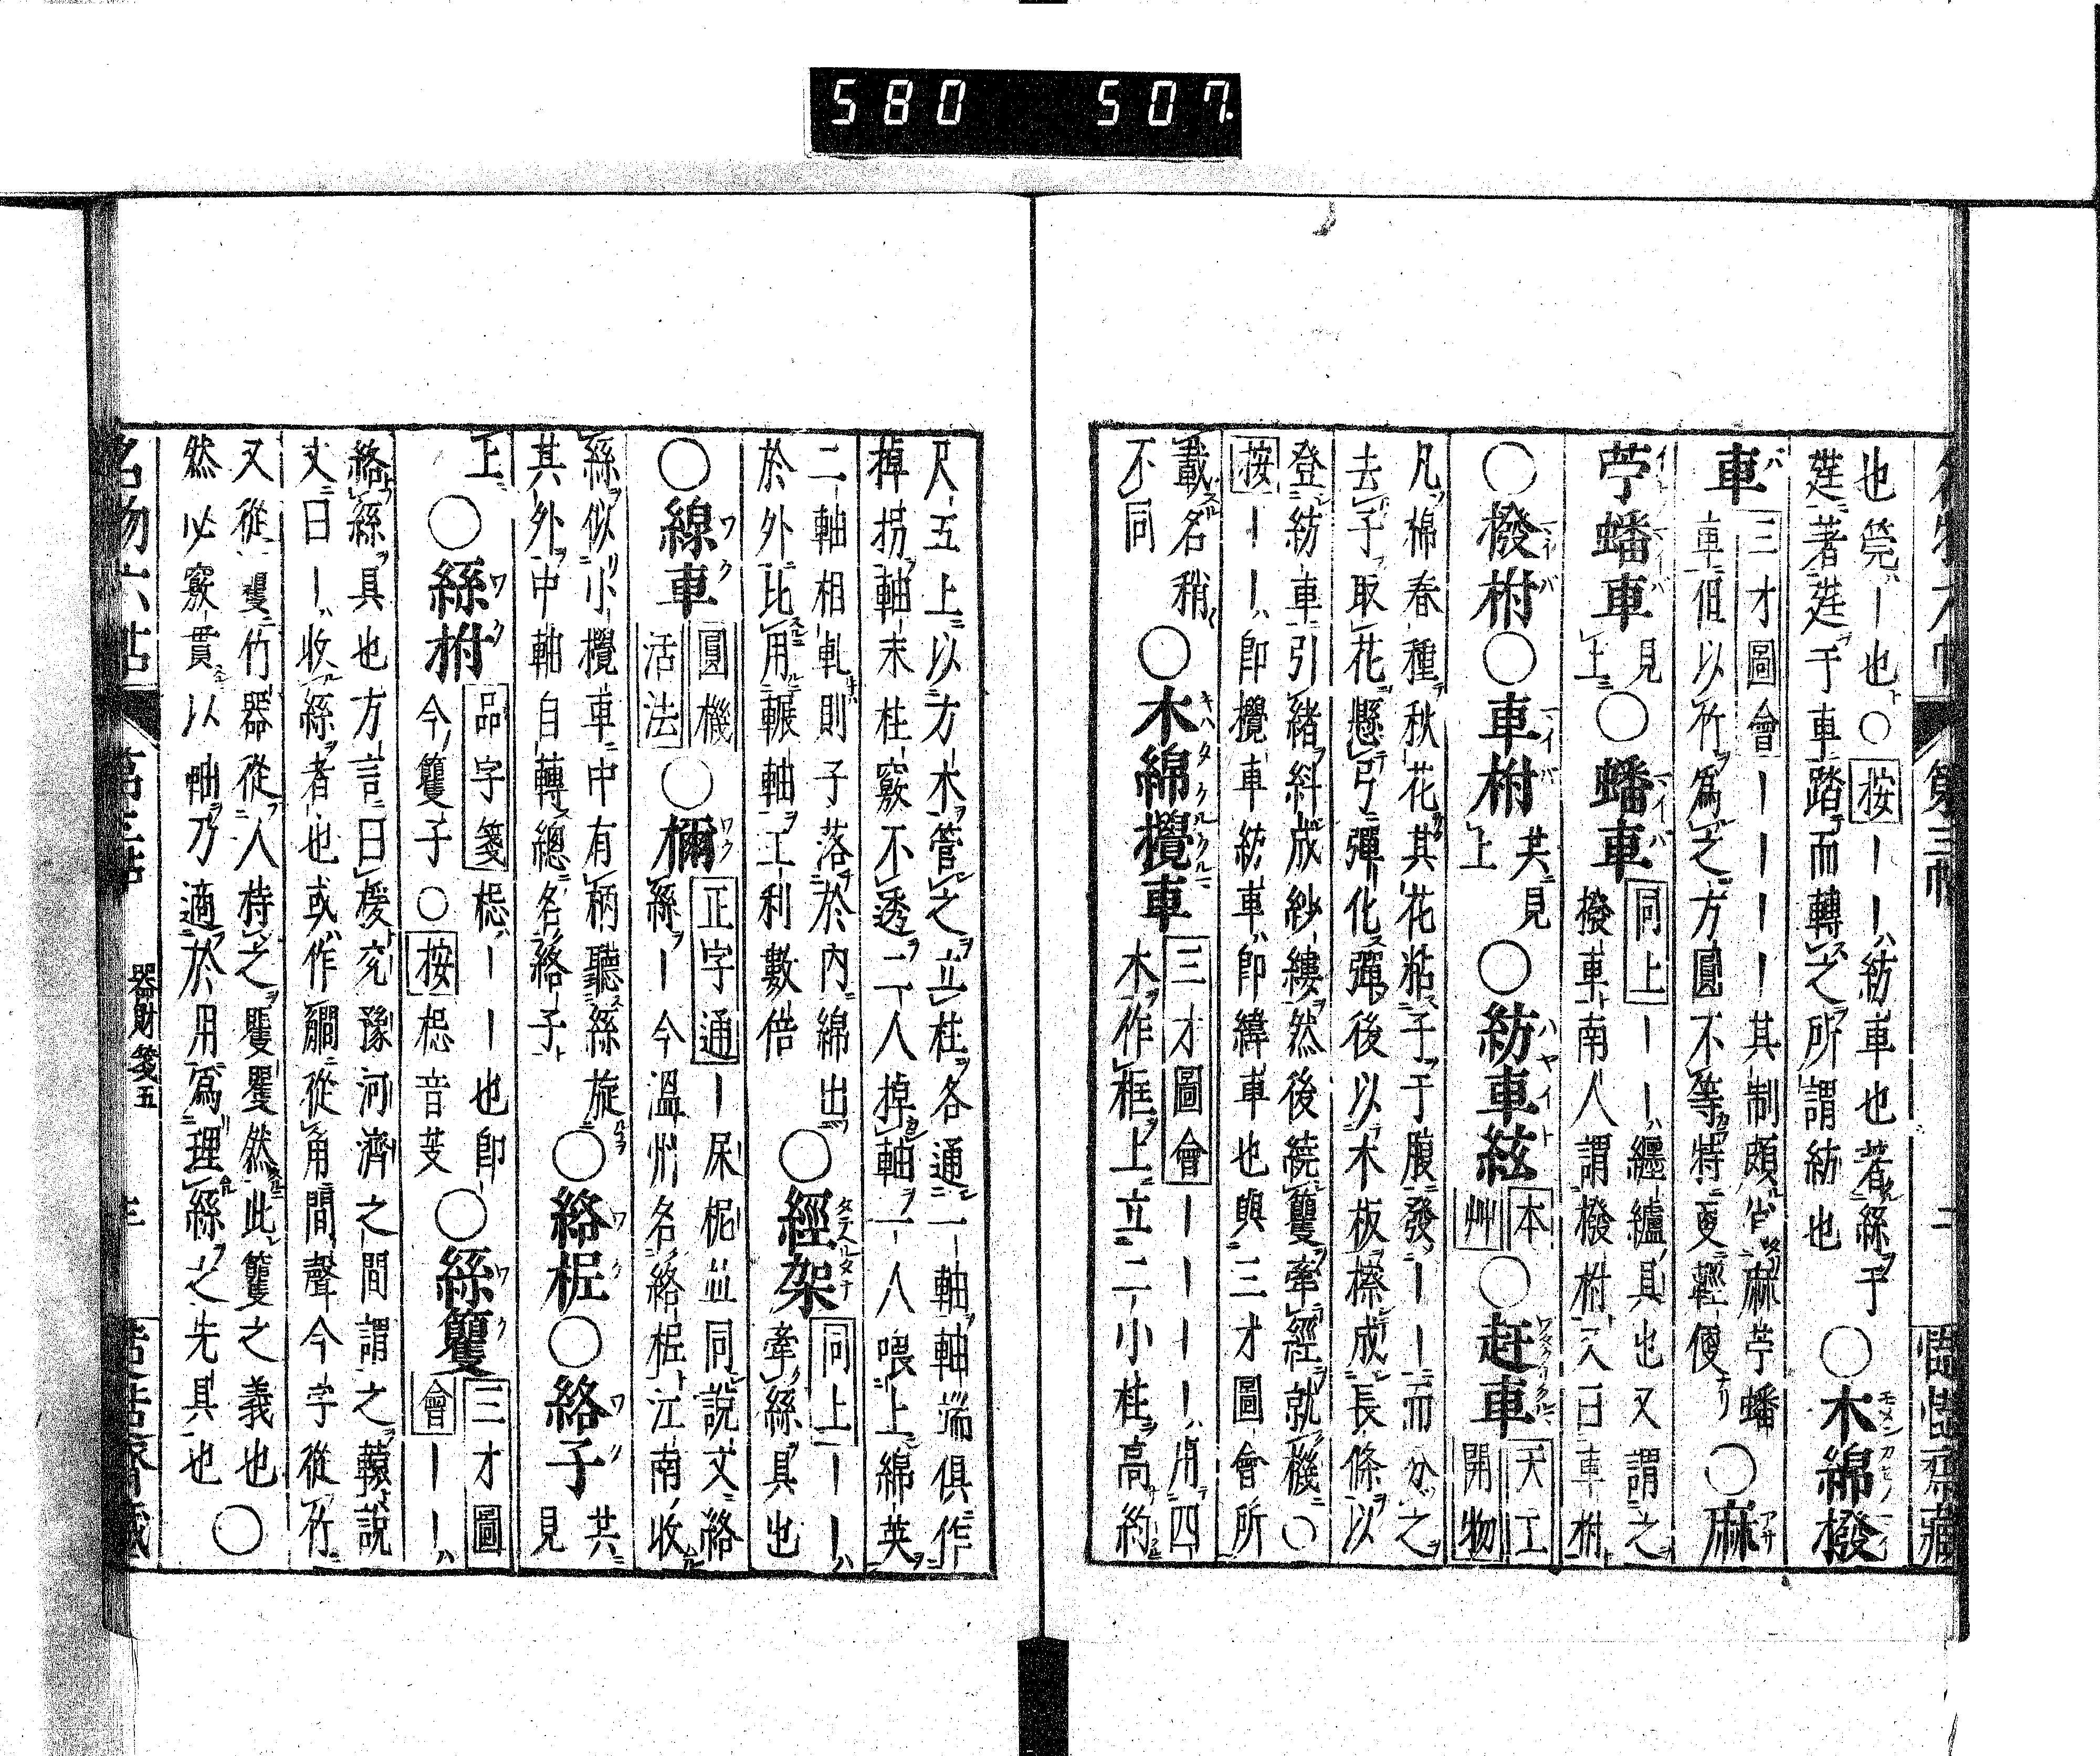 580 507.
第三帖
也筦ー也○按ーーハ紡車也著絲于
莛著莛于車踏而轉之所謂紡也
○木綿撥
車
三才圖會ーーーーー其制頗省麻苧蟠
車但以竹爲之方圓不等特更輕便
○麻
苧蟠車
見上
○蟠車
同上ーーハ纏纑具也又謂之
撥車南人謂撥柎又曰車柎
○撥柎○車柎
共見上
○紡車絃
本艸
○赶車
天工開物
凡棉春種秋花其花粘子于腹發ーー而分之
去子取花懸弓彈化彈後以木板擦成長條以
登紡車引緒糾成紗縷然後繞籰牽經就機○
按ーーハ即攪車紡車ハ即緯車也與三才圖會所
載名稍不同
○木綿攪車
三才圖會ーーーーハ用四
木作框上立二小柱高約
尺五上以方木管之立柱各通一軸軸端俱作
掉拐軸末柱竅不透二人掉軸一人喂上綿英
二軸相軋則子落於內綿出
於外比用輾軸工利數倍
○經架
同上ーーハ
牽絲具也
○線車
圓機活法
○檷
正字通ー㞑柅並同說文絡
絲ー今溫州名絡梍江南收
絲似小攪車中有柄聽絲旋
其外中軸自轉總名絡子
○絡梍○絡子
共見
上
○絲柎
品字箋梞ーー也即
今籰子○按梞音芰
○絲籰
三才圖會ーーハ
絡絲具也方言曰榬兗豫河濟之間謂之轅說
文曰ーハ收絲者也或作䌰從角間聲今字從竹
又從矍竹器從人持之矍矍然此籰之義也
然必竅貫以軸乃適於用爲理絲之先具也
○
名物六帖 第三帖 器財箋五